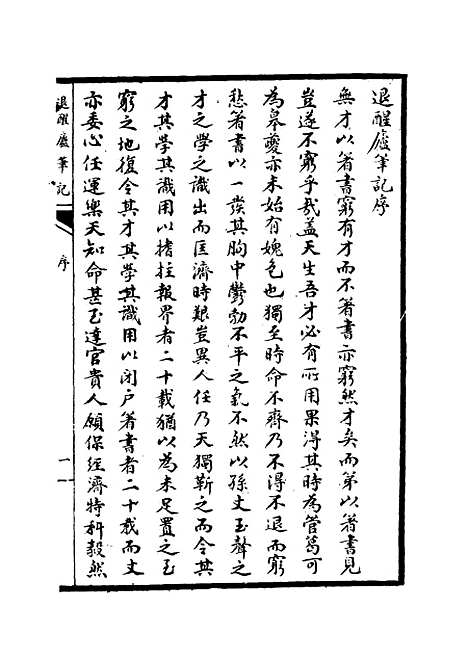 退醒廬筆記序
無才以箸書窮有才而不箸書亦窮然才矣而第以箸書見
豈遂不窮乎哉蓋天生吾才必有所用果得其時為管葛可
為皋夔亦未始有媿色也獨至時命不齊乃不得不退而窮
愁箸書以一發其胸中鬱勃不平之氣不然以孫丈玉聲之
才之學之識出而匡濟時艱豈異人任乃天獨靳之而令其
才其學其識用以搘拄報界者二十載猶以為未足置之至
窮之地復令其才其學其識用以閉户箸書者二十載而丈
亦委心任運樂天知命甚至達官貴人願保經濟特科毅然
退醒廬筆記
序
一